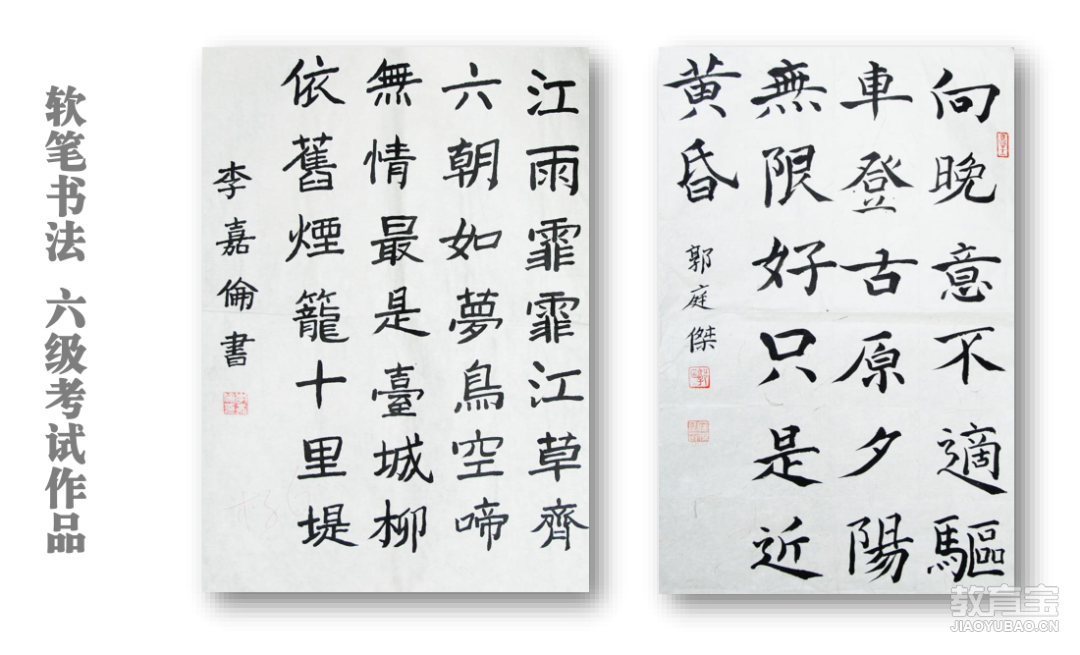 软笔书法 六级考试作品
江雨霏霏江草齊
六朝如夢鳥空啼
無情最是臺城柳
依舊煙籠十里堤
李嘉倫書
向晚意不適驅
車登古原夕陽
無限好只是近
黄昏
郭庭傑
教育宝
JIAOYUBAO.CN